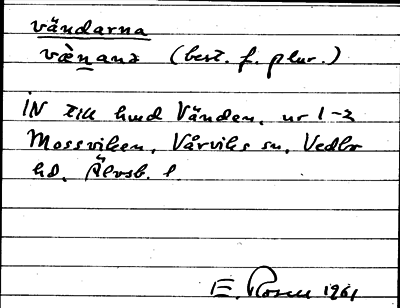 vändarna
væ̀nana (best. f. plur.)
IN till hmd Vänden, nr 1-2
Mossviken, Vårviks sn, Vedbo
hd, Älvsb. l
E. Rosell 1961